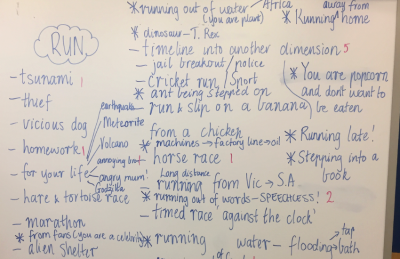 Africa
* running out of water
(you are plant)
away from
* Running home
RUN
* dinosaur - T. Rex
- timeline into another dimension 5
- jail breakout / police
- Cricket run / Sport
* ant being stepped on
- run & slip on a banana
* You are popcorn
and dont want to
be eaten
- tsunami 1
- thief
- vicious dog
- homework 1
- for your life
earthquake
Meteorite
Volcano
annoying brat
angry mum!
Godzilla
- hare & tortoise race
- marathon
* from fans (you are a celebrity)
- alien shelter
from a chicken
* machines → factory line → oil
horse race 1
Long distance
running from Vic → S.A
* running out of words - SPEECHLESS! 2
- timed race 'against the clock'
* running water - flooding bath
tap
of
* Running late!
* Stepping into a
book